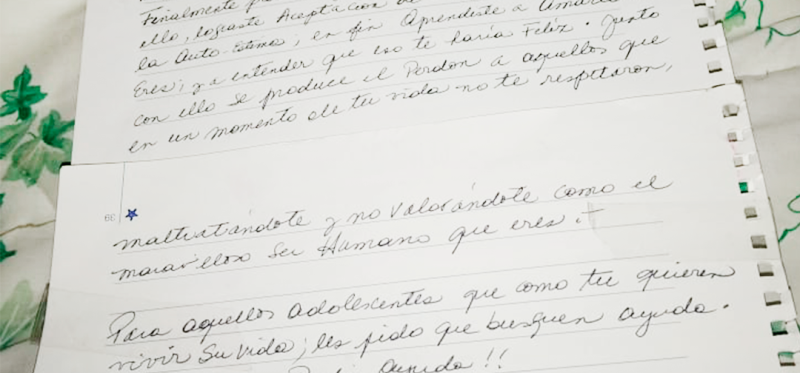 Finalmente
ello, lograste Aceptación
la Auto-Estima, en fin Aprendiste a
Eres; y a entender que eso te haría Feliz. Junto
con ello se produce el Perdon a aquellos que
en un momento de tu vida no te respetaron,
39
maltratándote y no valorándote como el
maravilloso Ser Humano que eres.
Para aquellos adolescentes que como tu quieren
vivir su vida; les pido que busquen ayuda.
ayuda!!